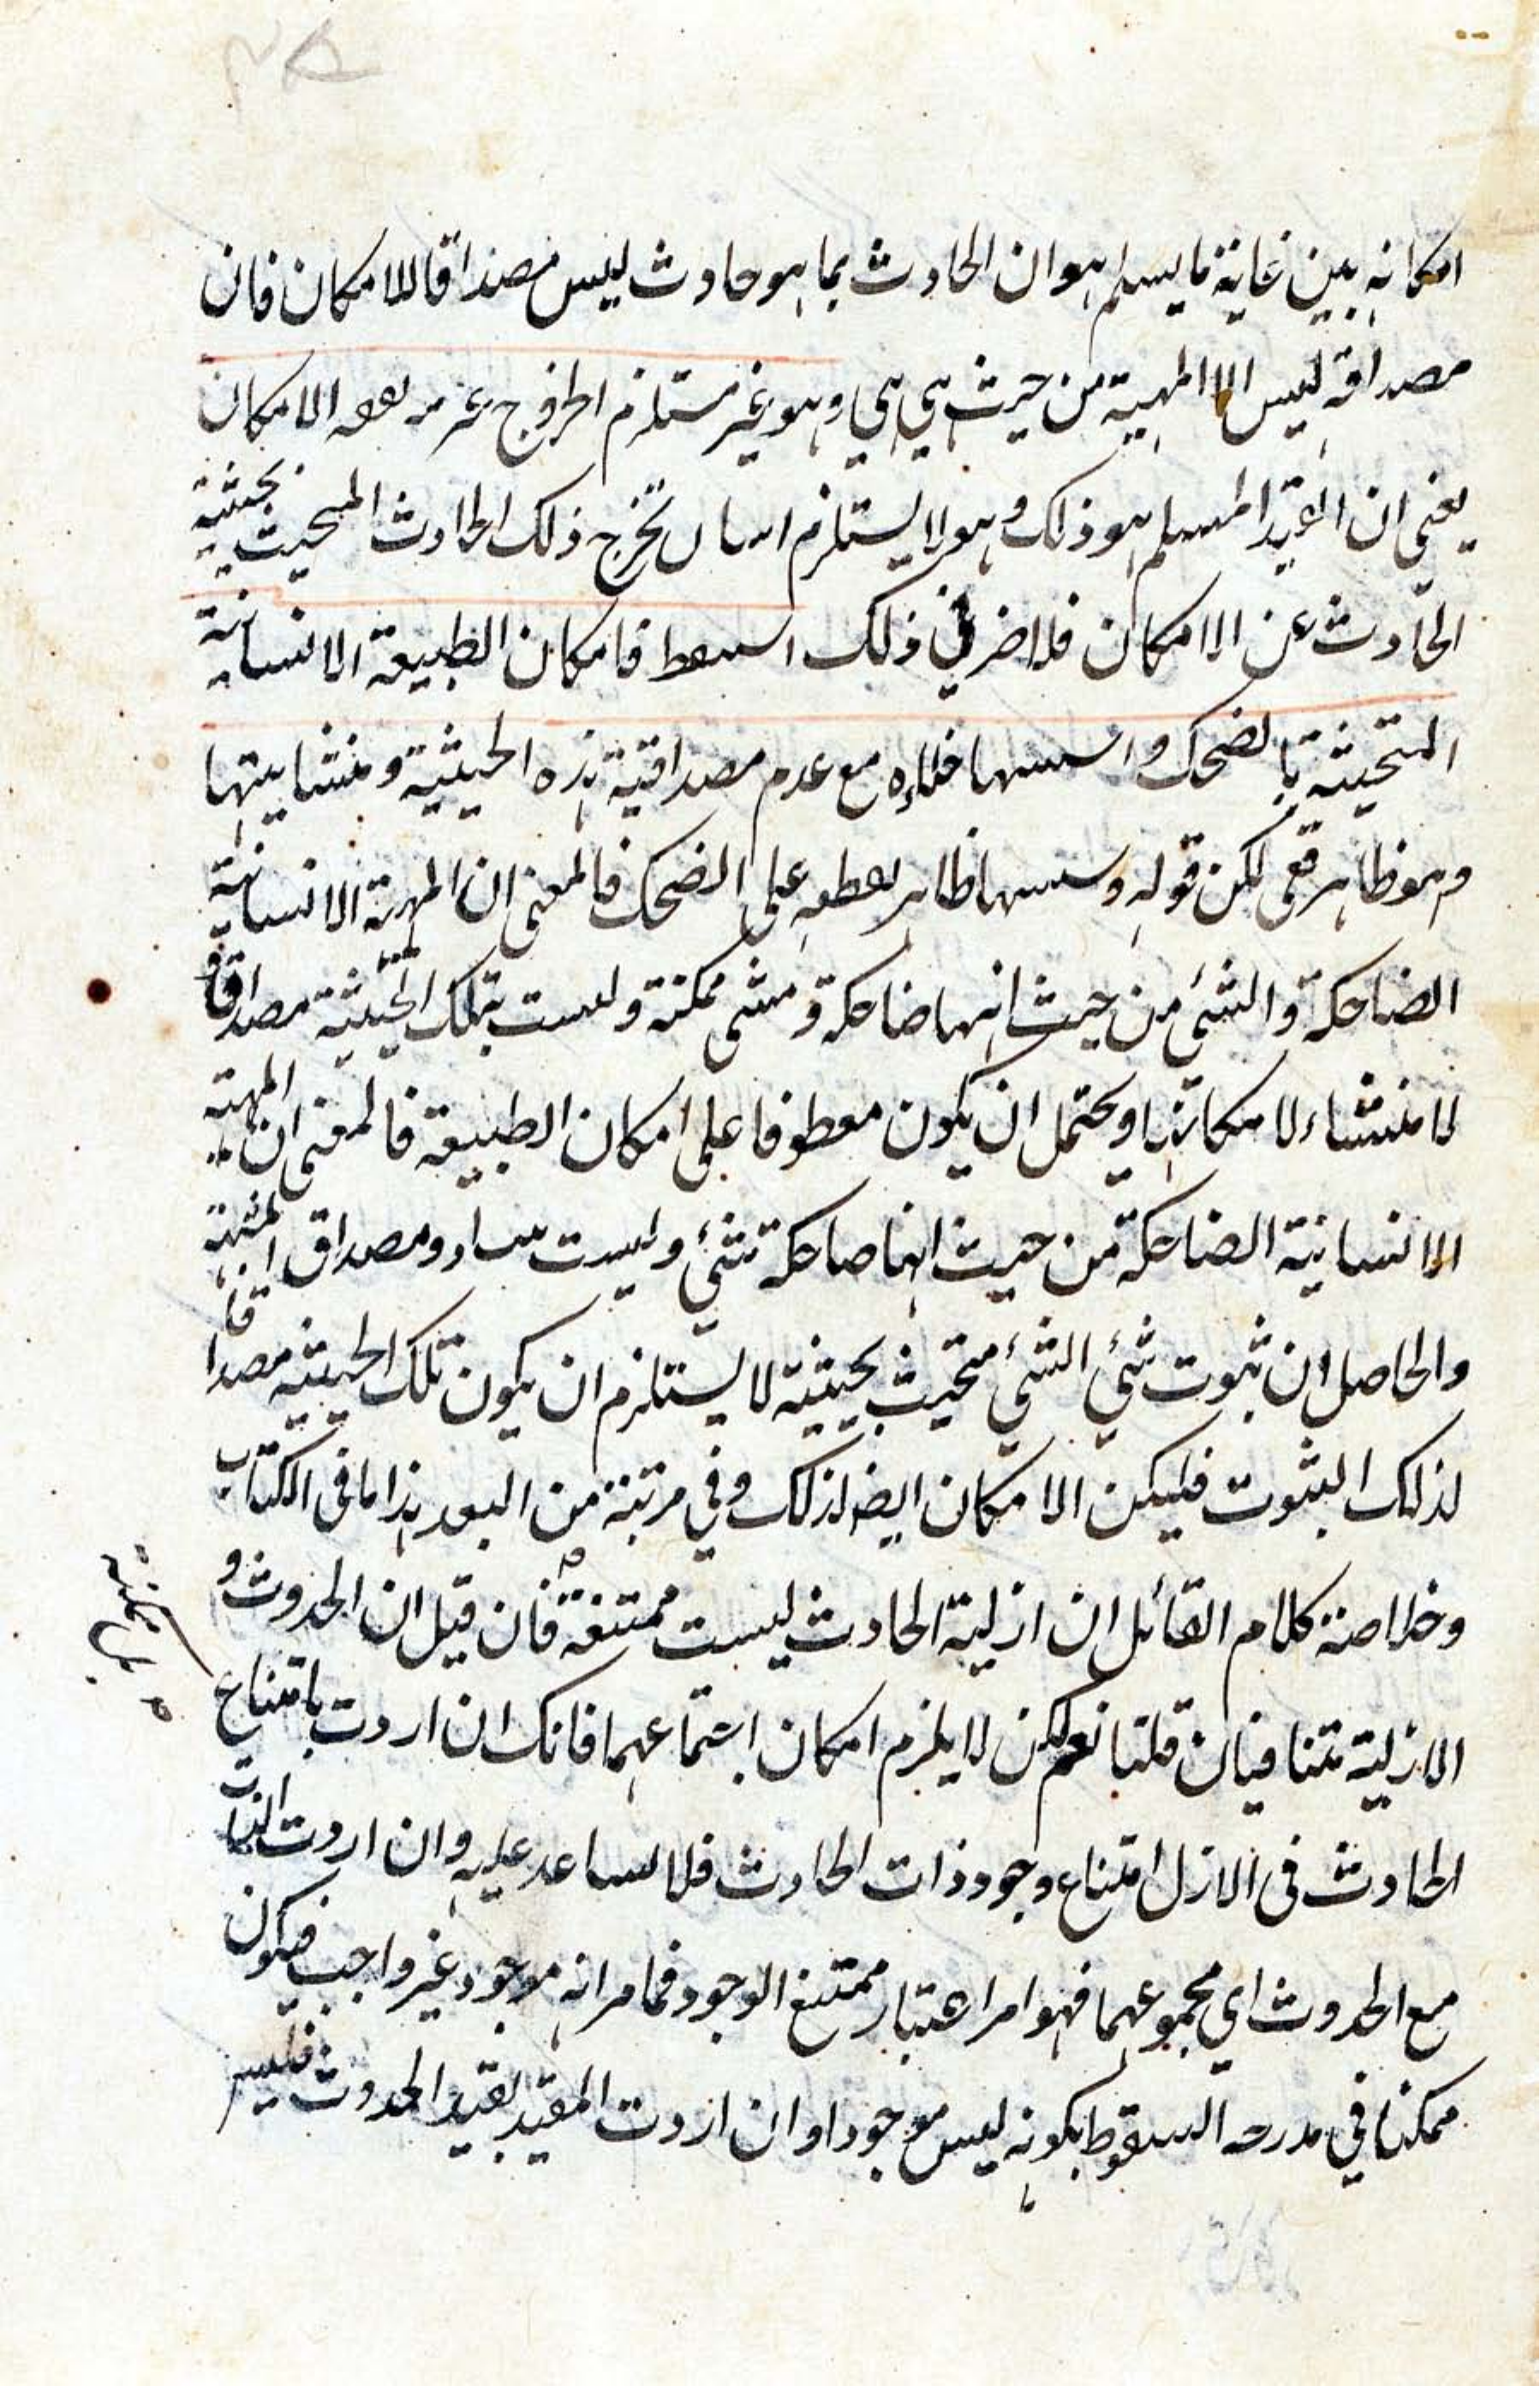 امكانه بين غاية ما يسلم هو ان الحادث بما هو حادث ليس مصداقا للامكان فان
مصداقه ليس الا المهية من حيث هي هي وهو غير مستلزم الخروج عن الامكان
يعني ان القدر المسلم هو ذلك وهو لا يستلزم تخرج ذلك الحادث المحيث بحيثية
الحادث عن الامكان فلا ضر في ذلك فامكان الطبيعة الانسانية
المتحيثة بالضحك و مع عدم مصداقية هذه الحيثية ومنشايتها
وهو ظاهر لكن قوله ظاهر على الضحك فالمعنى ان المهية الانسانية
الضاحكة والشئ من حيث انها ضاحكة وشئ ممكنة وليست بتلك الحيثية مصداقا
لا منشاء لامكانها ويحتمل ان يكون معطوفا على امكان الطبيعة فالمعنى ان المهية
الانسانية الضاحكة من حيث انها ضاحكة شئ وليست ومصداق
والحاصل ان ثبوت شئ الشئ متحيث بحيثية لا يستلزم ان يكون تلك الحيثية مصداقا
لذلك الثبوت فليكن الامكان ايضا كذلك وفي مرتبة من البعد هذا ما في الكتاب
وخلاصة كلام القائل ان ازلية الحادث ليست ممتنعة فان قيل ان الحدوث و
بل ممكنة
الازلية متنافيان قلنا نعم لكن لا يلزم امكان اجتماعهما فانك ان اردت بامتناع
الحادث في الازل امتناع وجود ذات الحادث فلا يساعد عليه وان اردت الذات
مع الحدوث اي مجموعهما فهو امر اعتبار ممتنع الوجود فما مر انه موجود غير واجب فيكون
ممكنا في السقوط بكونه ليس موجودا وان اردت المقيد بقيد الحدوث فليس